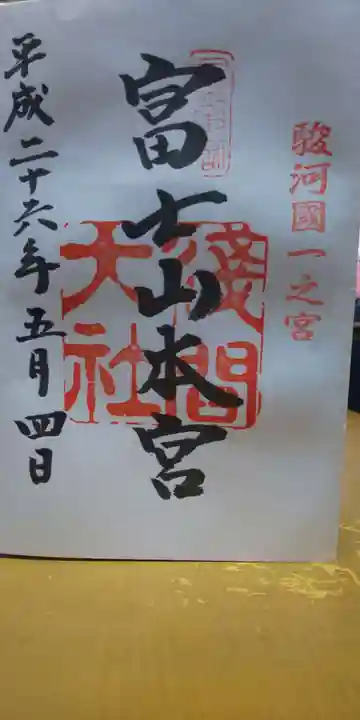 駿河國一之宮
富士山本宮
淺間
大社
平成二十六年五月四日